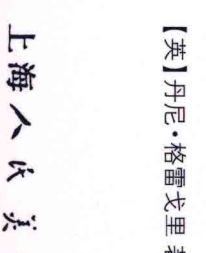 【英】丹尼·格雷戈里 著
上海人民美